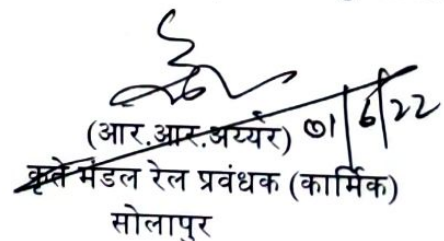 (आर.आर.अय्यर) 01/6/22
कृते मंडल रेल प्रवंधक (कार्मिक)
सोलापुर